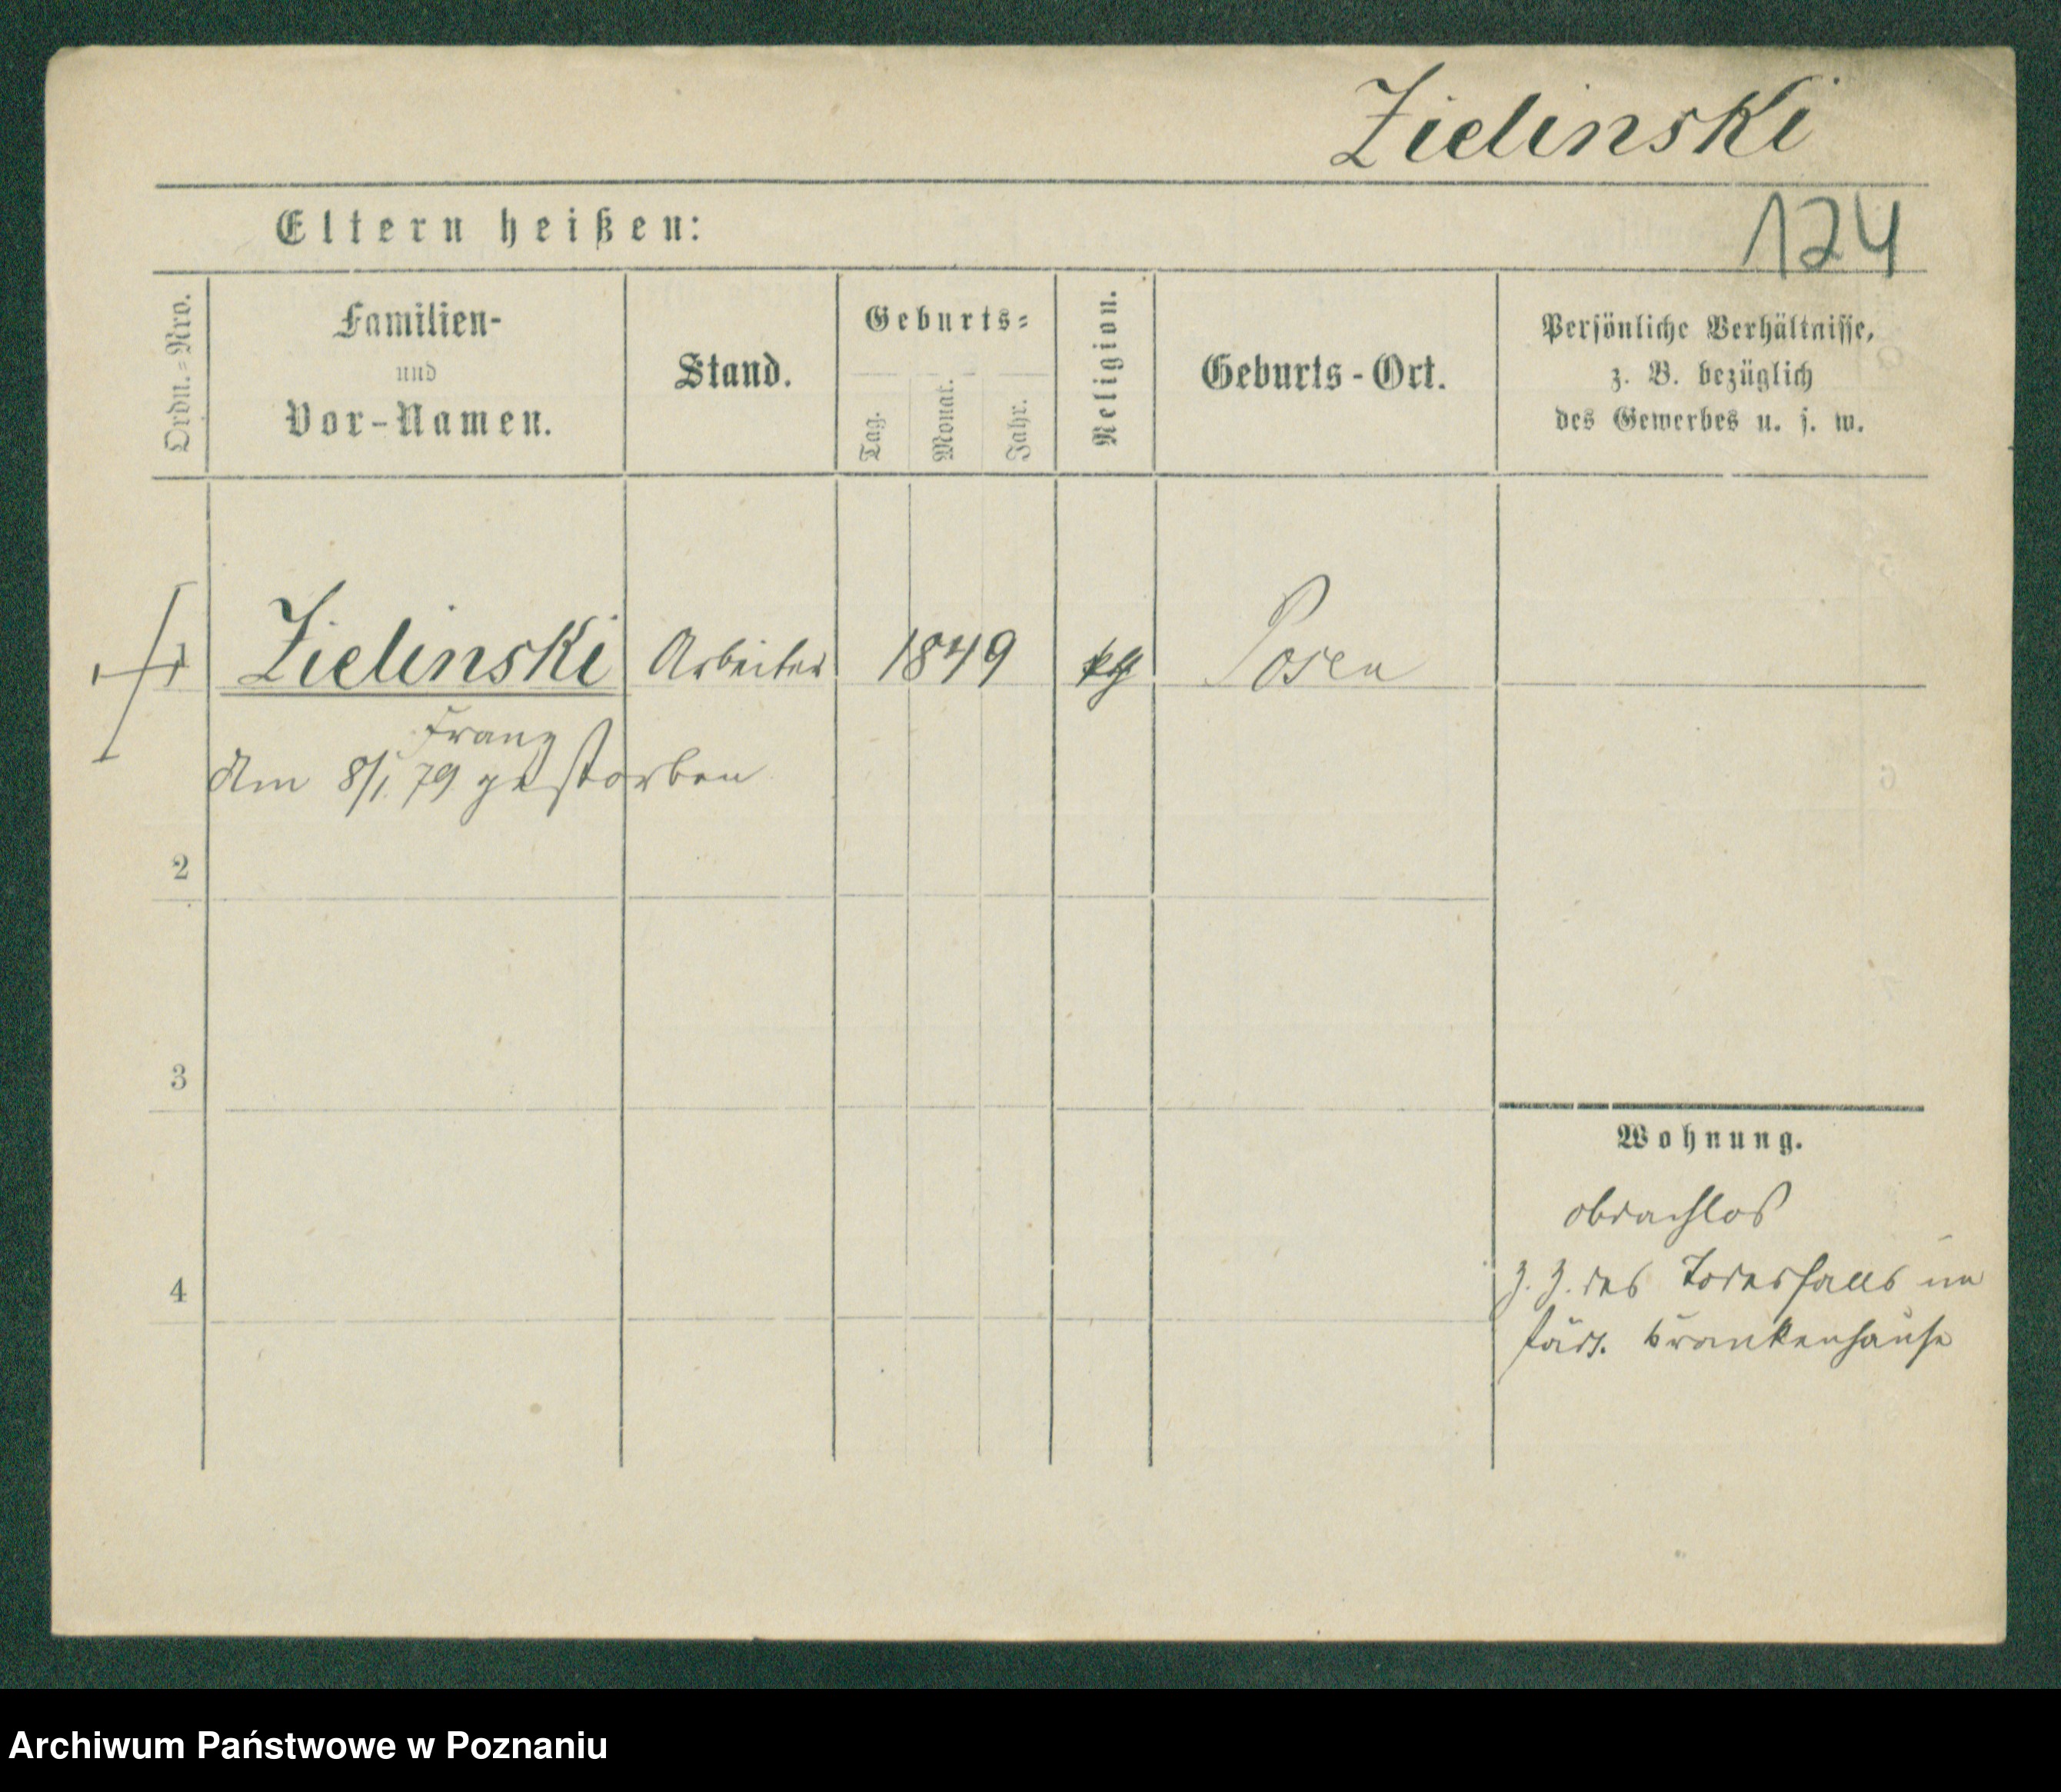 Zielinski
124
Eltern heißen:
Ordn.=Nro.
Familien-
und
Vor-Namen.
Stand.
Geburts=
Tag.
Monat.
Jahr.
Religion.
Geburts-Ort.
Persönliche Verhältnisse,
z. B. bezüglich
des Gewerbes u. s. w.
1 Zielinski Arbeiter 1849 kth Posen
Franz
Am 8/1. 79 gestorben
2
3
4
Wohnung.
obdachlos
z. Z. des Todesfalls im
städt. Krankenhause
Archiwum Państwowe w Poznaniu